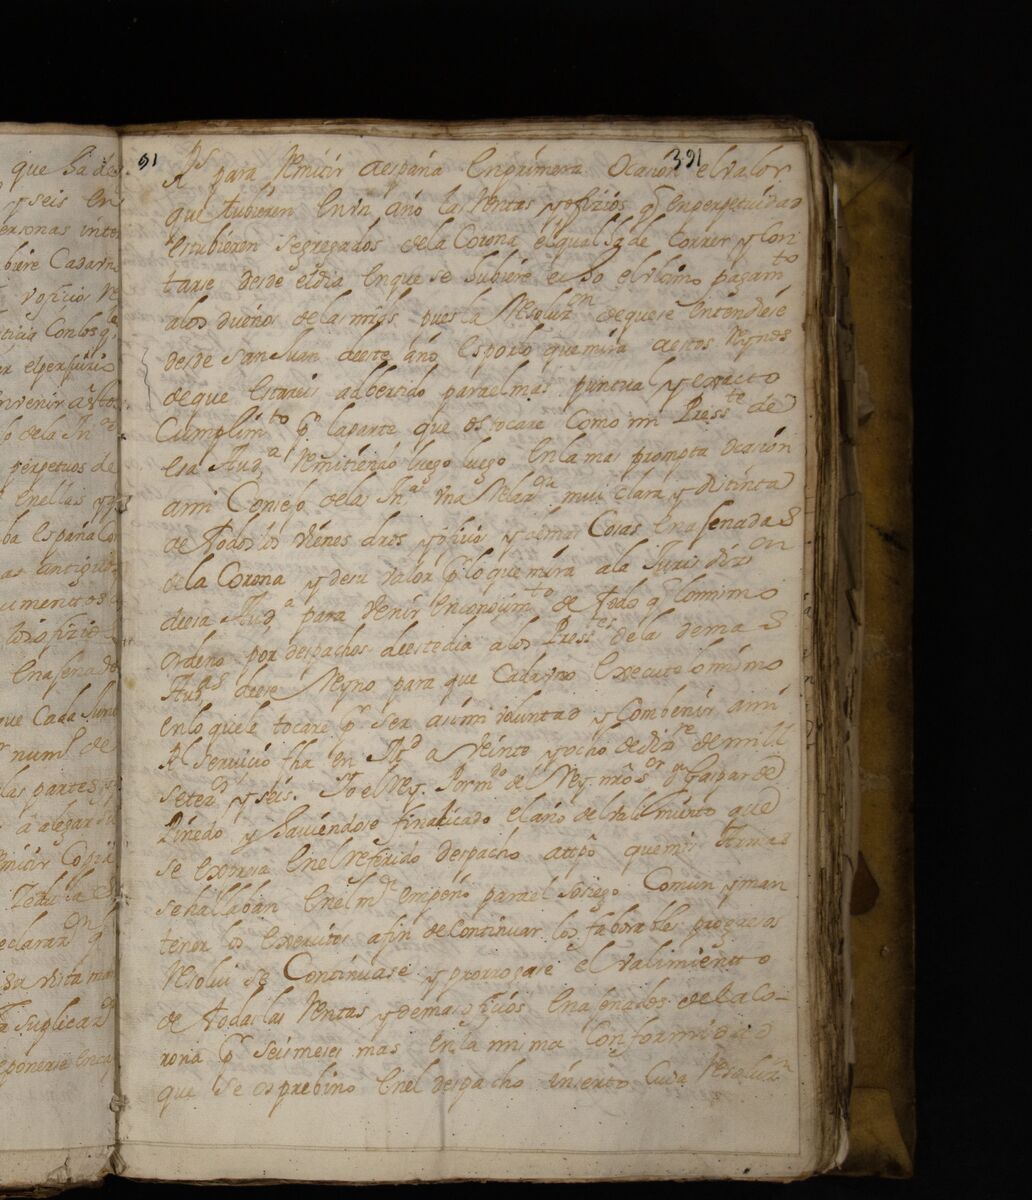 que ha de
y seis en
ersonas inter
biere Cada
y oficios
ticia Con los
perpetuos de
en ellas
ba españa Con
as antigue
umentos
los ofizio
enaxenado
que Cada
num.l de
las partes
a alegar
mitir Copia
Zedula
eclaraz.n q
su vista
suplicaz
eponerse
91
391
Rs para Remitir a españa en primera Ocasion el valor
que tubieren en un año las Rentas y ofizios q en perpetuidad
estubieren segregados de la Corona el qual ha de Correr y Con
tarse desde el dia en que se hubiere echo el ultimo pagam.to
a los dueños de las mis.s pues la Resoluz.on de que se entendiese
desde San Juan de este año es por lo que mira a estos Reynos
de que estareis adbertido para el mas puntual y exacto
Cumplim.to p.r la parte que os tocare Como mi Press.te de
esa Aud.a Remitiendo luego luego en la mas prompta ocasion
a mi Consejo de las In.as una Relaz.on mui clara y distinta
de todos los vienes dros y ofizios y demas Cosas enaxenadas
de la Corona y de su valor p.r lo que mira a la Jurisdiz.on
de esa Aud.a para venir en conozim.to de todo q lo mismo
ordeno por despachos de este dia a los Press.tes de las demas
Aud.as de ese Reyno para que Cada uno execute lo mismo
en lo que le tocare p.r ser asi mi voluntad y Combenir a mi
Rl servicio fha en M.d a Veinte y ocho de diz.re de mill
setez.s y seis. Yo el Rey. Por m.do de Rey nro s.or Dn Gaspar de
Pinedo y haviendose finalicado el año del valimiento que
se expresa en el referido despacho a tiempo que mis Armas
se hallaban en el m.or empeño para el sosiego Comun y man
tener los exercitos a fin de Continuar los faborables progresos
Resolui se Continuase y prorrogase el valimiento
de todas las Rentas y demas ofizios enaxenados de la Co-
rona p.r seis meses mas en la misma Conformidad
que se os prebino en el despacho inserto Cuia Resoluz.n